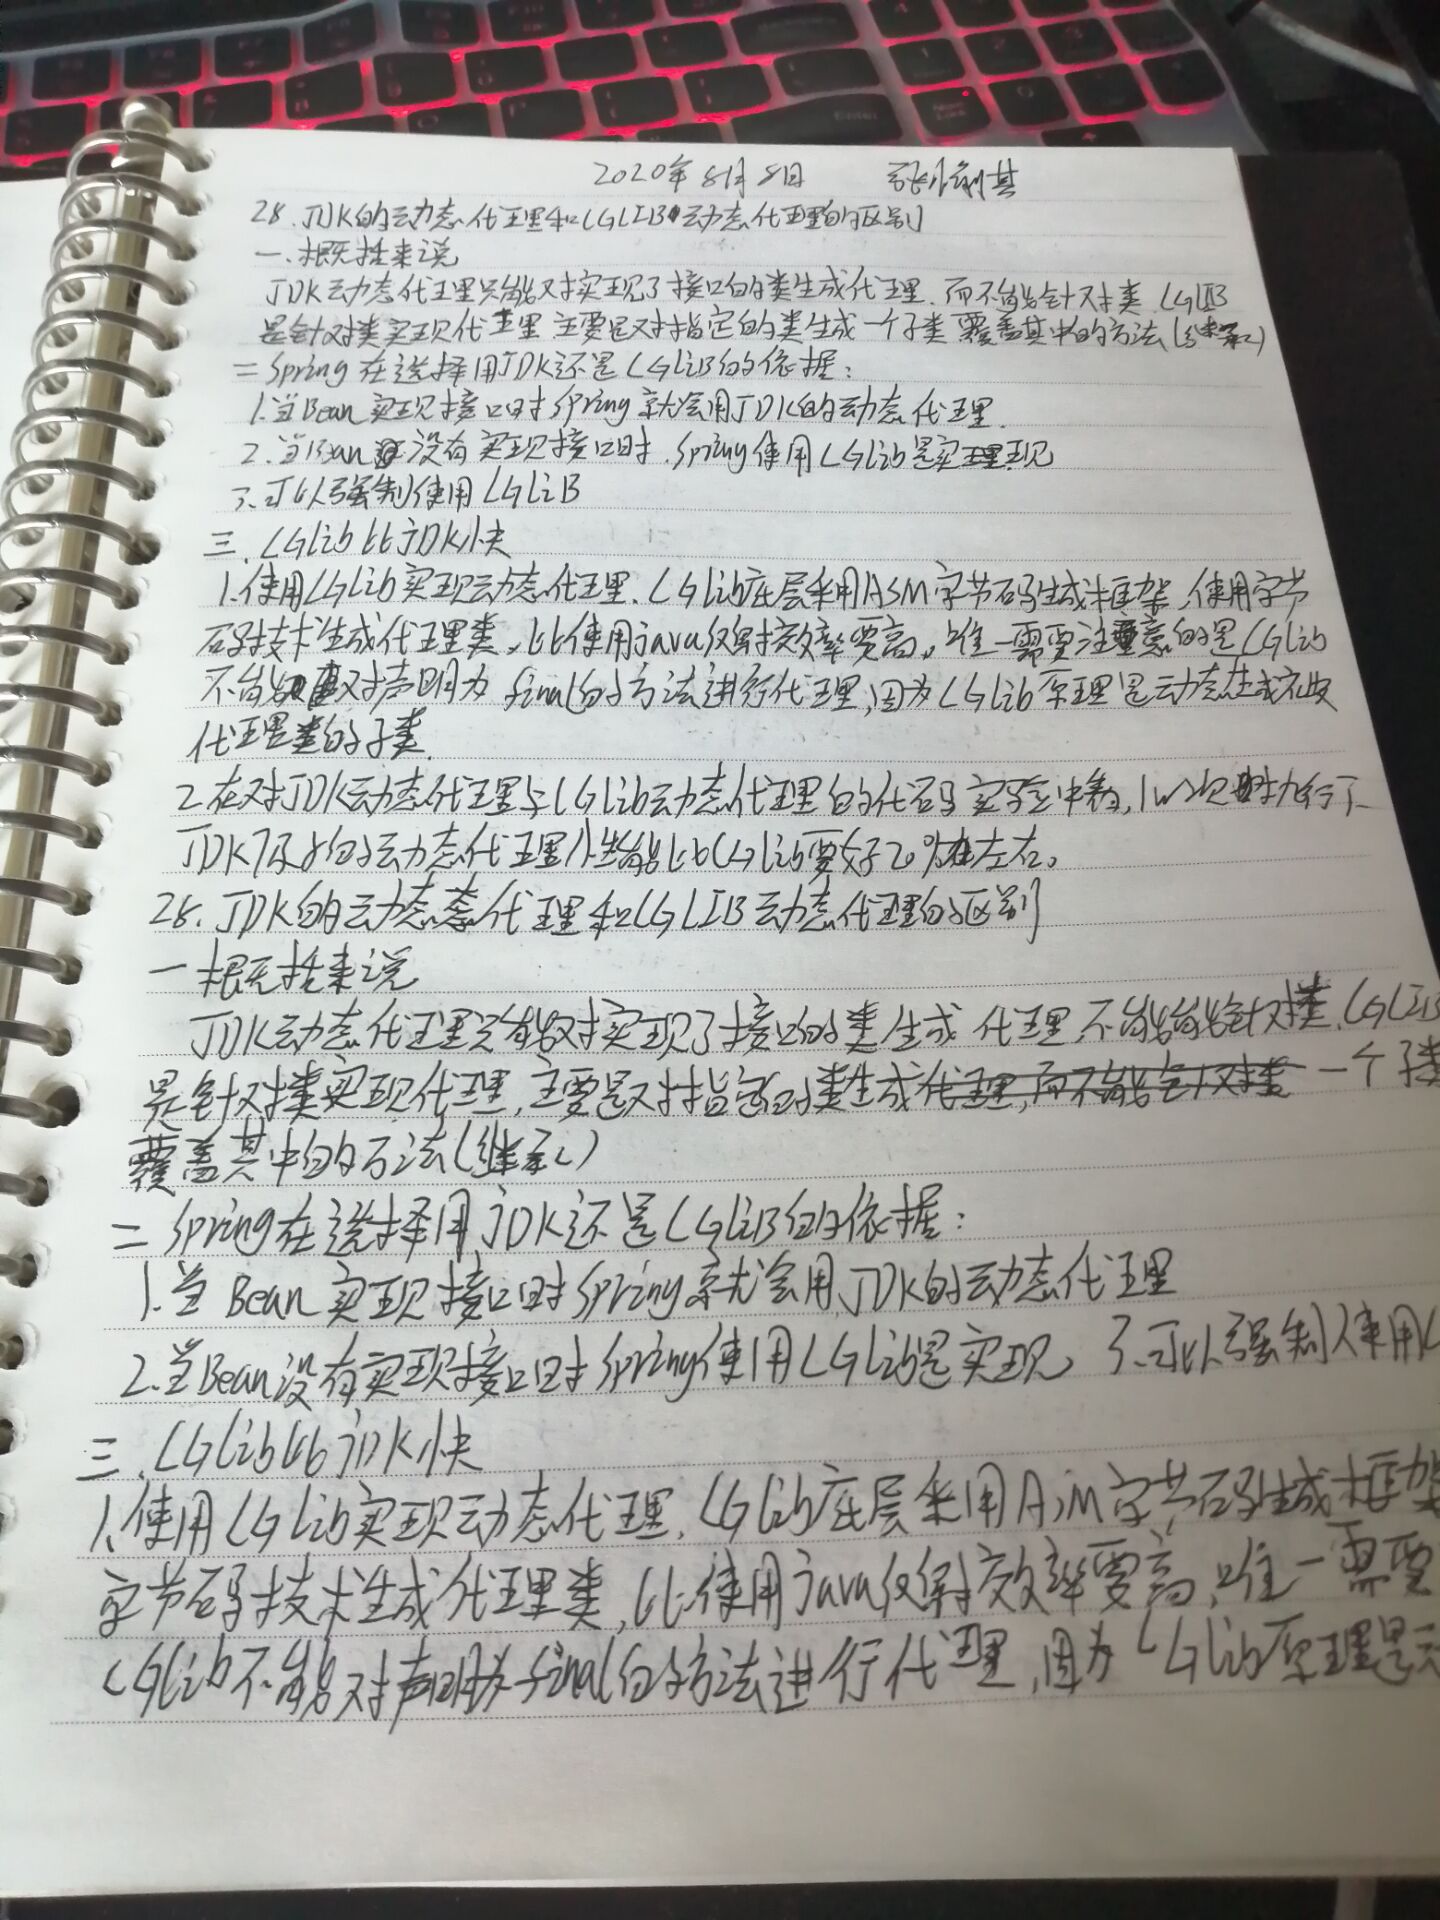 2020年8月8日
28.JDK的动态代理和CGLIB动态代理的区别
一.概括来说
JDK动态代理只能对实现了接口的类生成代理.而不能针对类.CGLIB
是针对类实现代理 主要是对指定的类生成一个子类 覆盖其中的方法(继承)
二 Spring在选择用JDK还是CGLiB的依据:
1.当Bean实现接口时 Spring就会用JDK的动态代理.
2.当Bean 没有实现接口时.Spring使用CGLib是实现
3.可以强制使用CGLiB
三.CGLib比JDK快
1.使用CGLib实现动态代理.CGLib底层采用ASM字节码生成框架,使用字节
码技术生成代理类,比使用java反射效率要高。唯一需要注意的是CGLib
不能对声明为final的方法进行代理,因为CGLib原理是动态生成被
代理类的子类.
2.在对JDK动态代理与CGLib动态代理的代码实验中,1W次执行下
JDK7及8的动态代理性能比CGLib要好20%左右。
28.JDK的动态代理和CGLIB动态代理的区别
一 概括来说
JDK动态代理只能对实现了接口的类生成代理.不能能针对类.CGLIB
是针对类实现代理,主要是对指定的类生成代理,而不能针对类 一个子类
覆盖其中的方法(继承)
二 Spring在选择用JDK还是CGLiB的依据:
1.当Bean实现接口时Spring就会用JDK的动态代理
2.当Bean没有实现接口时Spring使用CGLib是实现 3.可以强制使用C
三.CGLib比JDK快
1.使用CGLib实现动态代理.CGLib底层采用ASM字节码生成框架
字节码技术生成代理类,比使用java反射效率要高,唯一需要
CGLib不能对声明为final的方法进行代理,因为CGLib原理是动